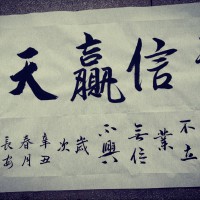 信贏天
不立
業
無信
不興
歲
次
辛丑
春月
長安